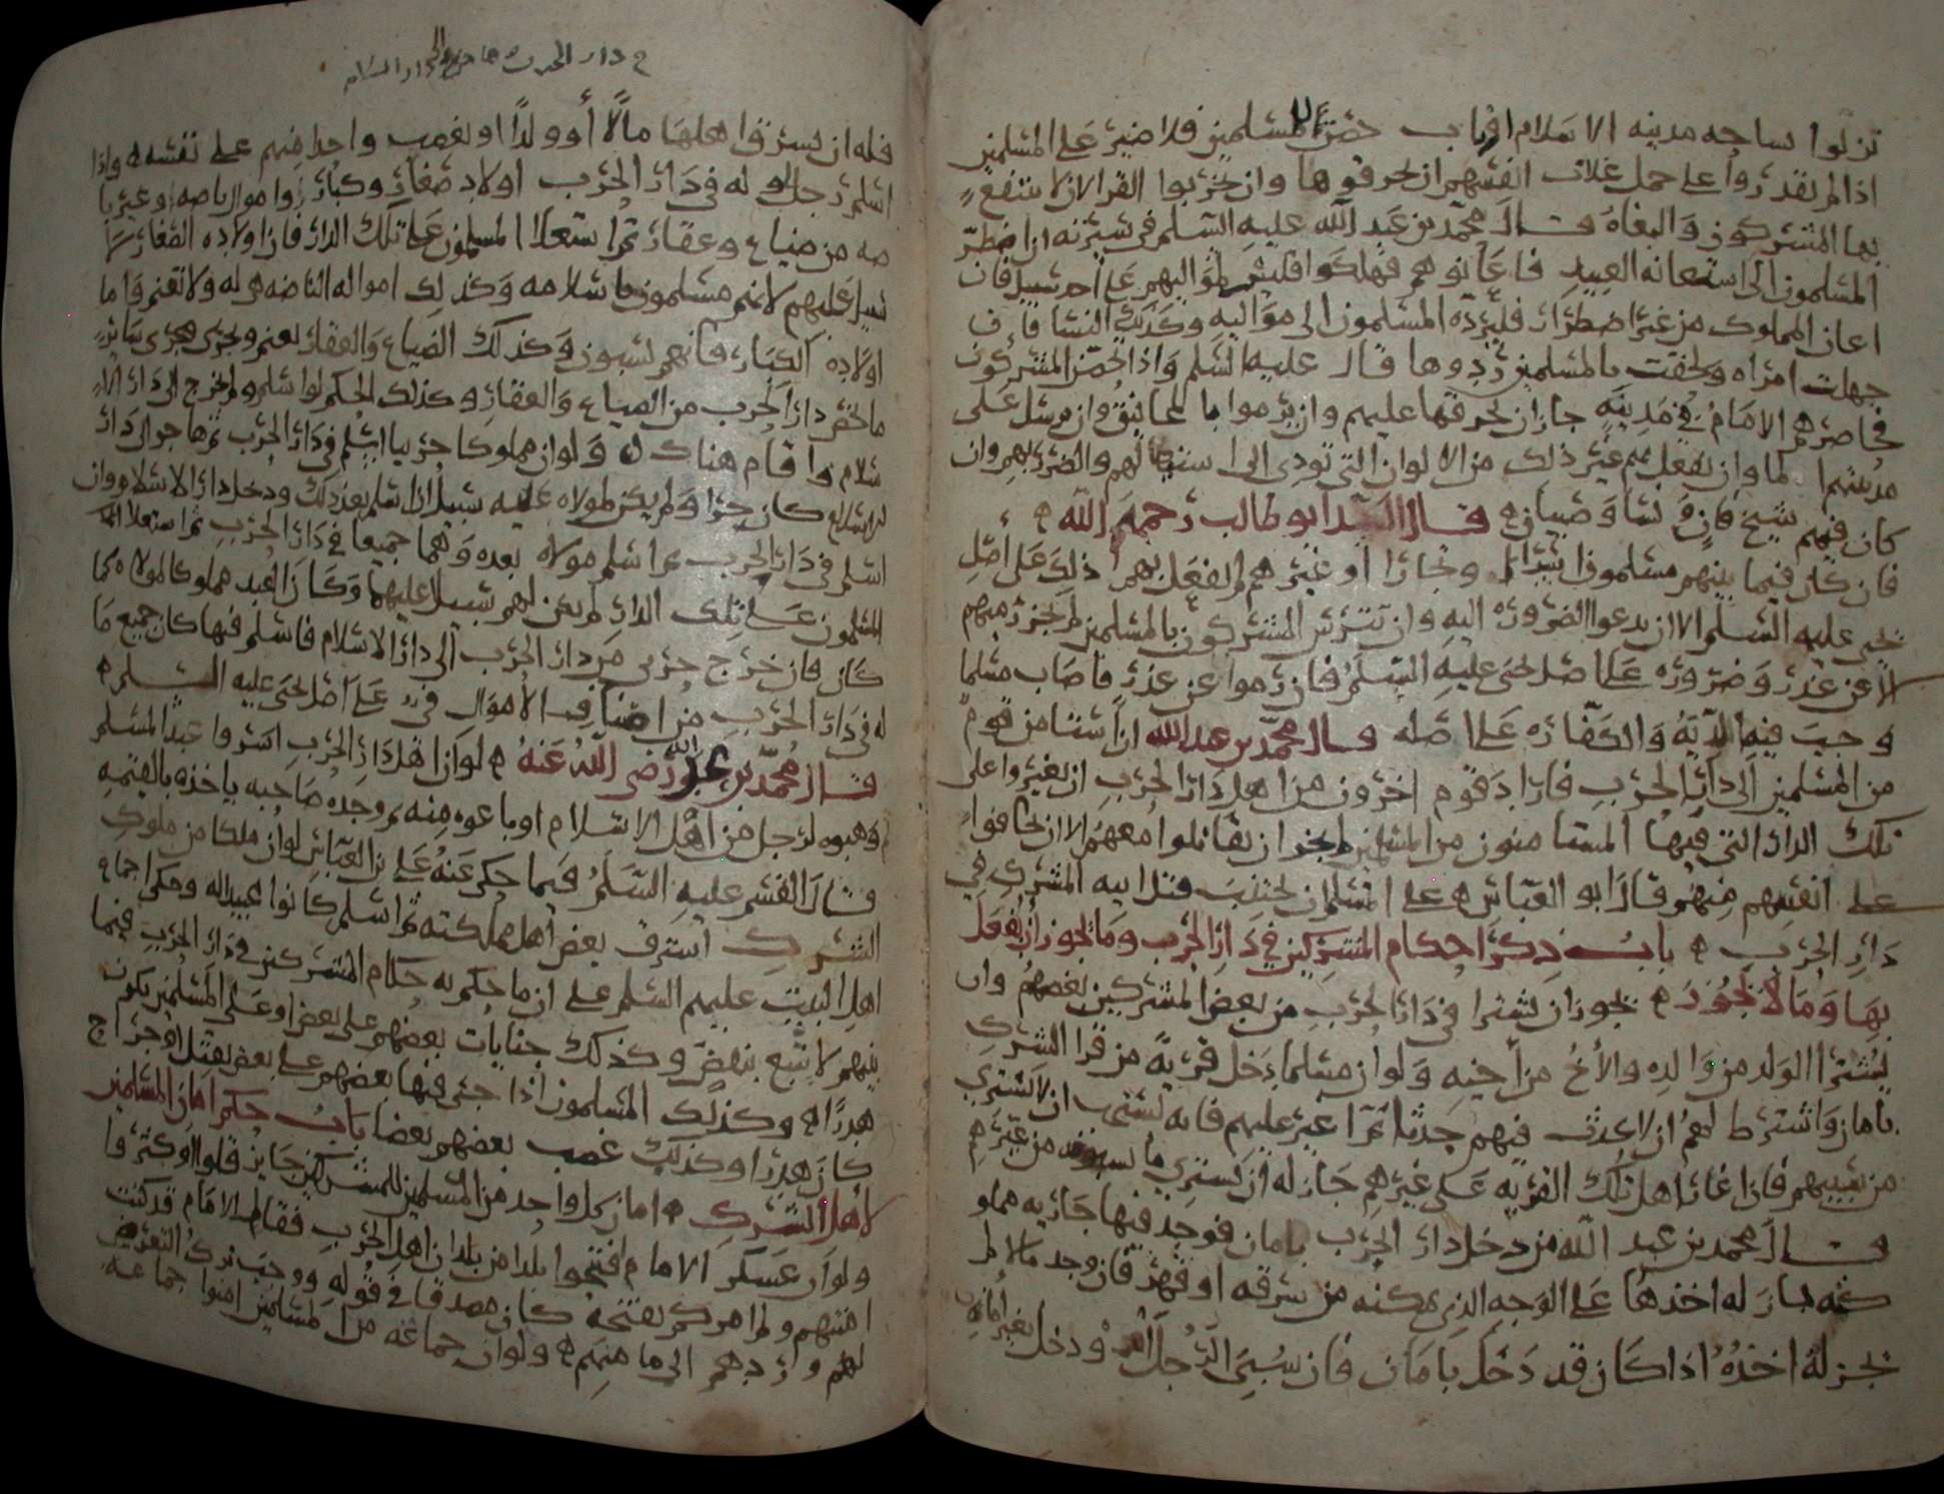 نزلوا ساحه مدينه الاسلام او باب حصن للمسلمين فلا ضير على المسلمين
اذا لم يقدروا على حمل غلات انفسهم ان يحرقوها وان يخربوا القرا لان لا ينتفع
بها المشركون والبغاه قال محمد بن عبد الله عليه السلم في سيرته اذا اضطر
المسلمون الى استعانه العبيد فاعانوهم فهلكوا فليس لمواليهم على احد سبيل فان
اعان المملوك من غير اضطرار فليرده المسلمون الى مواليه وكذلك النسا فان
جهلت امراه ولحقت بالمسلمين ردوها قال عليه السلم واذا تحصن المشركون
فحاصرهم الامام في مدينه جاز ان يحرقها عليهم وان يرموا بالمجانيق وان يرسل على
مدينتهم الما وان يفعل بهم غير ذلك من الالوان التي تودي الى استيصالهم والضرر بهم وان
كان فيهم شيخ فان ونسا وصبيان قال السيد ابو طالب رحمه الله
فان كان فيما بينهم مسلمون اسرا وتجارا او غيرهم لم يفعل بهم ذلك على اصل
يحيى عليه السلم الا ان يدعوا الضروره اليه وان تترس المشركون بالمسلمين لم يجز رميهم
الا عن عذر وضروره على اصل يحيى عليه السلم فان رموا عن عذر فاصاب مسلما
وجب فيه الديه والكفاره على اصله قال محمد بن عبد الله اذا استامن قوم
من المسلمين الى دار الحرب فاراد قوم اخرون من اهل دار الحرب ان يغيروا على
تلك الدار التي فيها المستامنون من المسلمين لم يجز ان يقاتلوا معهم الا ان يخافوا
على انفسهم منهم قال ابو العباس على المسلم ان يجتنب قتل ابيه المشرك في
دار الحرب باب ذكر احكام المشركين في دار الحرب وما يجوز ان يفعل
بها وما لا يجوز يجوز ان يشترا في دار الحرب من بعض المشركين بعضهم وان
يشترا الولد من والده والاخ من اخيه ولو ان مسلما دخل قريه من قرا الشرك
بامان واشترط لهم ان لا يحدث فيهم حدثا ثم اغير عليهم فانه يستحب ان لا يشتري
من سبيهم فان اغار اهل تلك القريه على غيرهم جاز له ان يشتري ما يسبونه من غيرهم
قال محمد بن عبد الله من دخل دار الحرب بامان فوجد فيها جاريه مملو
كه جاز له اخذها على الوجه الذي يمكنه من سرقه او قهر فان وجد مالا لم
يجز له اخذه اذا كان قد دخل بامان فان سبي الرجل ودخل بغير امان
في دار الحرب دار السلام
فله ان يسرق اهلها مالا او ولدا او يغصب واحدا منهم على نفسه واذا
اسلم رجل وله في دار الحرب اولاد صغار وكبار واموال ناضه وغير نا
ضه من ضياع وعقار ثم استعلا المسلمون على تلك الدار فان اولاده الصغار لا
سبيل عليهم لانهم مسلمون باسلامه وكذلك امواله الناضه هي له ولا تغنم واما
اولاده الكبار فانهم يسبون وكذلك الضياع والعقار يغنم ويجرى مجرى ساير
ما تحويه دار الحرب من الضياع والعقار وكذلك الحكم لو اسلم ولم يخرج الى دار الا
سلام واقام هناك ولو ان مملوكا حربيا اسلم في دار الحرب ثم هاجر الى دار
الاسلام كان حرا ولم يكن لمولاه عليه سبيل اذا اسلم بعد ذلك ودخل دار الاسلام وان
اسلم في دار الحرب ثم اسلم مولاه بعده وهما جميعا في دار الحرب ثم استعلا
المسلمون على تلك الدار لم يكن لهم سبيل عليهما وكان العبد مملوكا لمولاه كما
كان فان خرج حربي من دار الحرب الى دار الاسلام فاسلم فيها كان جميع ما
له في دار الحرب من اصناف الاموال في على اصل يحيى عليه السلم
قال محمد بن عبد الله رضي الله عنه لو ان اهل دار الحرب اسروا عبدا لمسلم
ثم وهبوه لرجل من اهل الاسلام او باعوه منه ثم وجده صاحبه ياخذه بالقيمه
قال القسم عليه السلم فيما حكى عنه علي بن العباس لو ان ملكا من ملوك
الشرك استرق بعض اهل مملكته ثم اسلم كانوا عبيدا له وحكى اجماع
اهل البيت عليهم السلم على ان ما حكم به حكام المشركين في دار الحرب فيما
بينهم لا يتبع بنقض وكذلك جنايات بعضهم على بعض او على المسلمين يكون
هدرا وكذلك المسلمون اذا جنى فيها بعضهم على بعض بقتل او جراح
كان هدرا وكذلك غصب بعضهم بعضا باب حكم امان المسلمين
لاهل الشرك امان كل واحد من المسلمين للمشركين جايز قلوا او كثروا
ولو ان عسكر الامام افتتحوا بلدا من بلدان اهل الحرب فقال لهم الامام قد كنت
امنتهم ولم امركم بفتحه كان مصدقا في قوله ووجب ترك التعرض
لهم وردهم الى مامنهم ولو ان جماعه من المسلمين امنوا جماعه